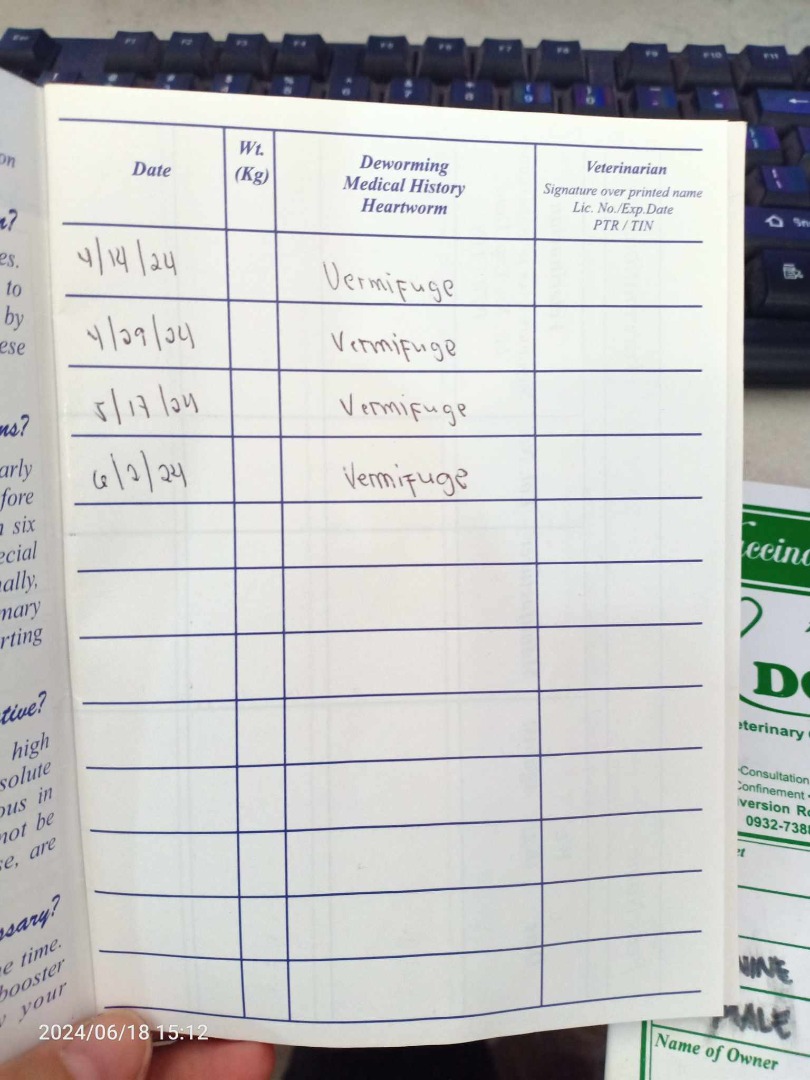 Esc F1 F2 F3 F4 F5 F6 F7 F8 F9 F10 F11
on
n?
es.
to
by
ese
ns?
arly
fore
n six
ecial
nally,
mary
rting
tive?
high
solute
ous in
not be
se, are
ssary?
e time.
booster
y your
Date
Wt.
(Kg)
Deworming
Medical History
Heartworm
Veterinarian
Signature over printed name
Lic. No./Exp.Date
PTR / TIN
4/14/24 Vermifuge
4/29/24 Vermifuge
5/17/24 Vermifuge
6/2/24 Vermifuge
accina
DO
eterinary
•Consultation
Confinement •
version Ro
0932-738
et
NINE
MALE
Name of Owner
2024/06/18 15:12